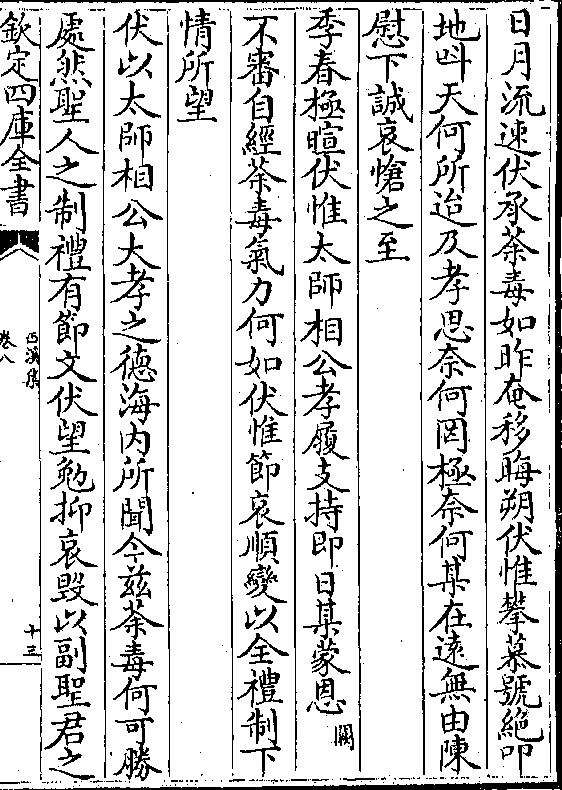 日月流速伏承荼毒如昨奄移晦朔伏惟攀慕號絶叩
地叫天何所迨及孝思奈何罔極奈何某在遠無由陳
慰下誠哀愴之至
季春極暄伏惟太師相公孝履支持即日某蒙恩闕
不審自經荼毒氣力何如伏惟節哀順變以全禮制下
情所望
伏以太師相公大孝之德海内所聞今兹荼毒何可勝
處然聖人之制禮有節文伏望勉抑哀毁以副聖君之
欽定四庫全書
西溪集
卷八
十三